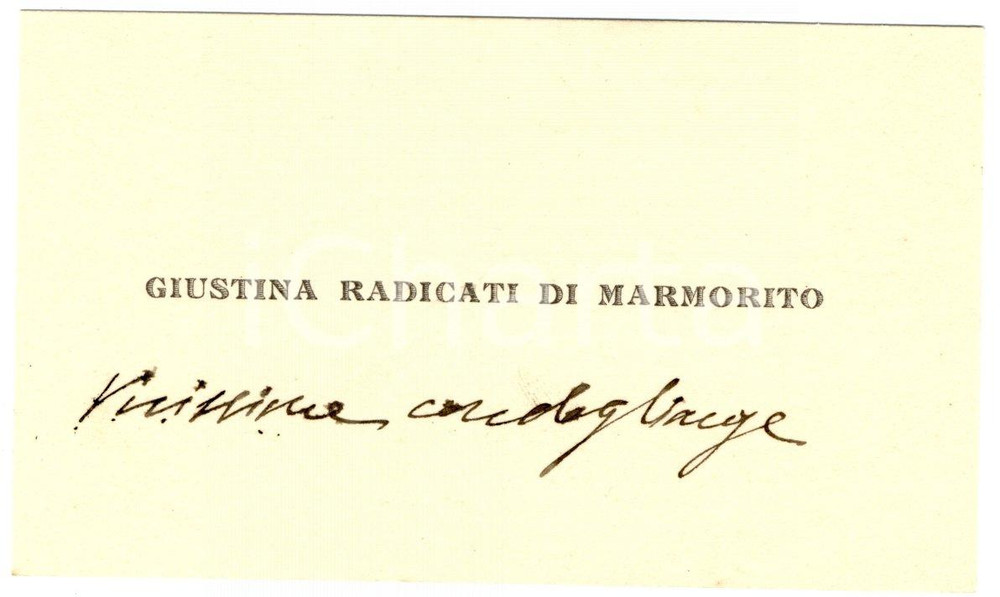 GIUSTINA RADICATI DI MARMORITO
Vivissime condoglianze
iCharta